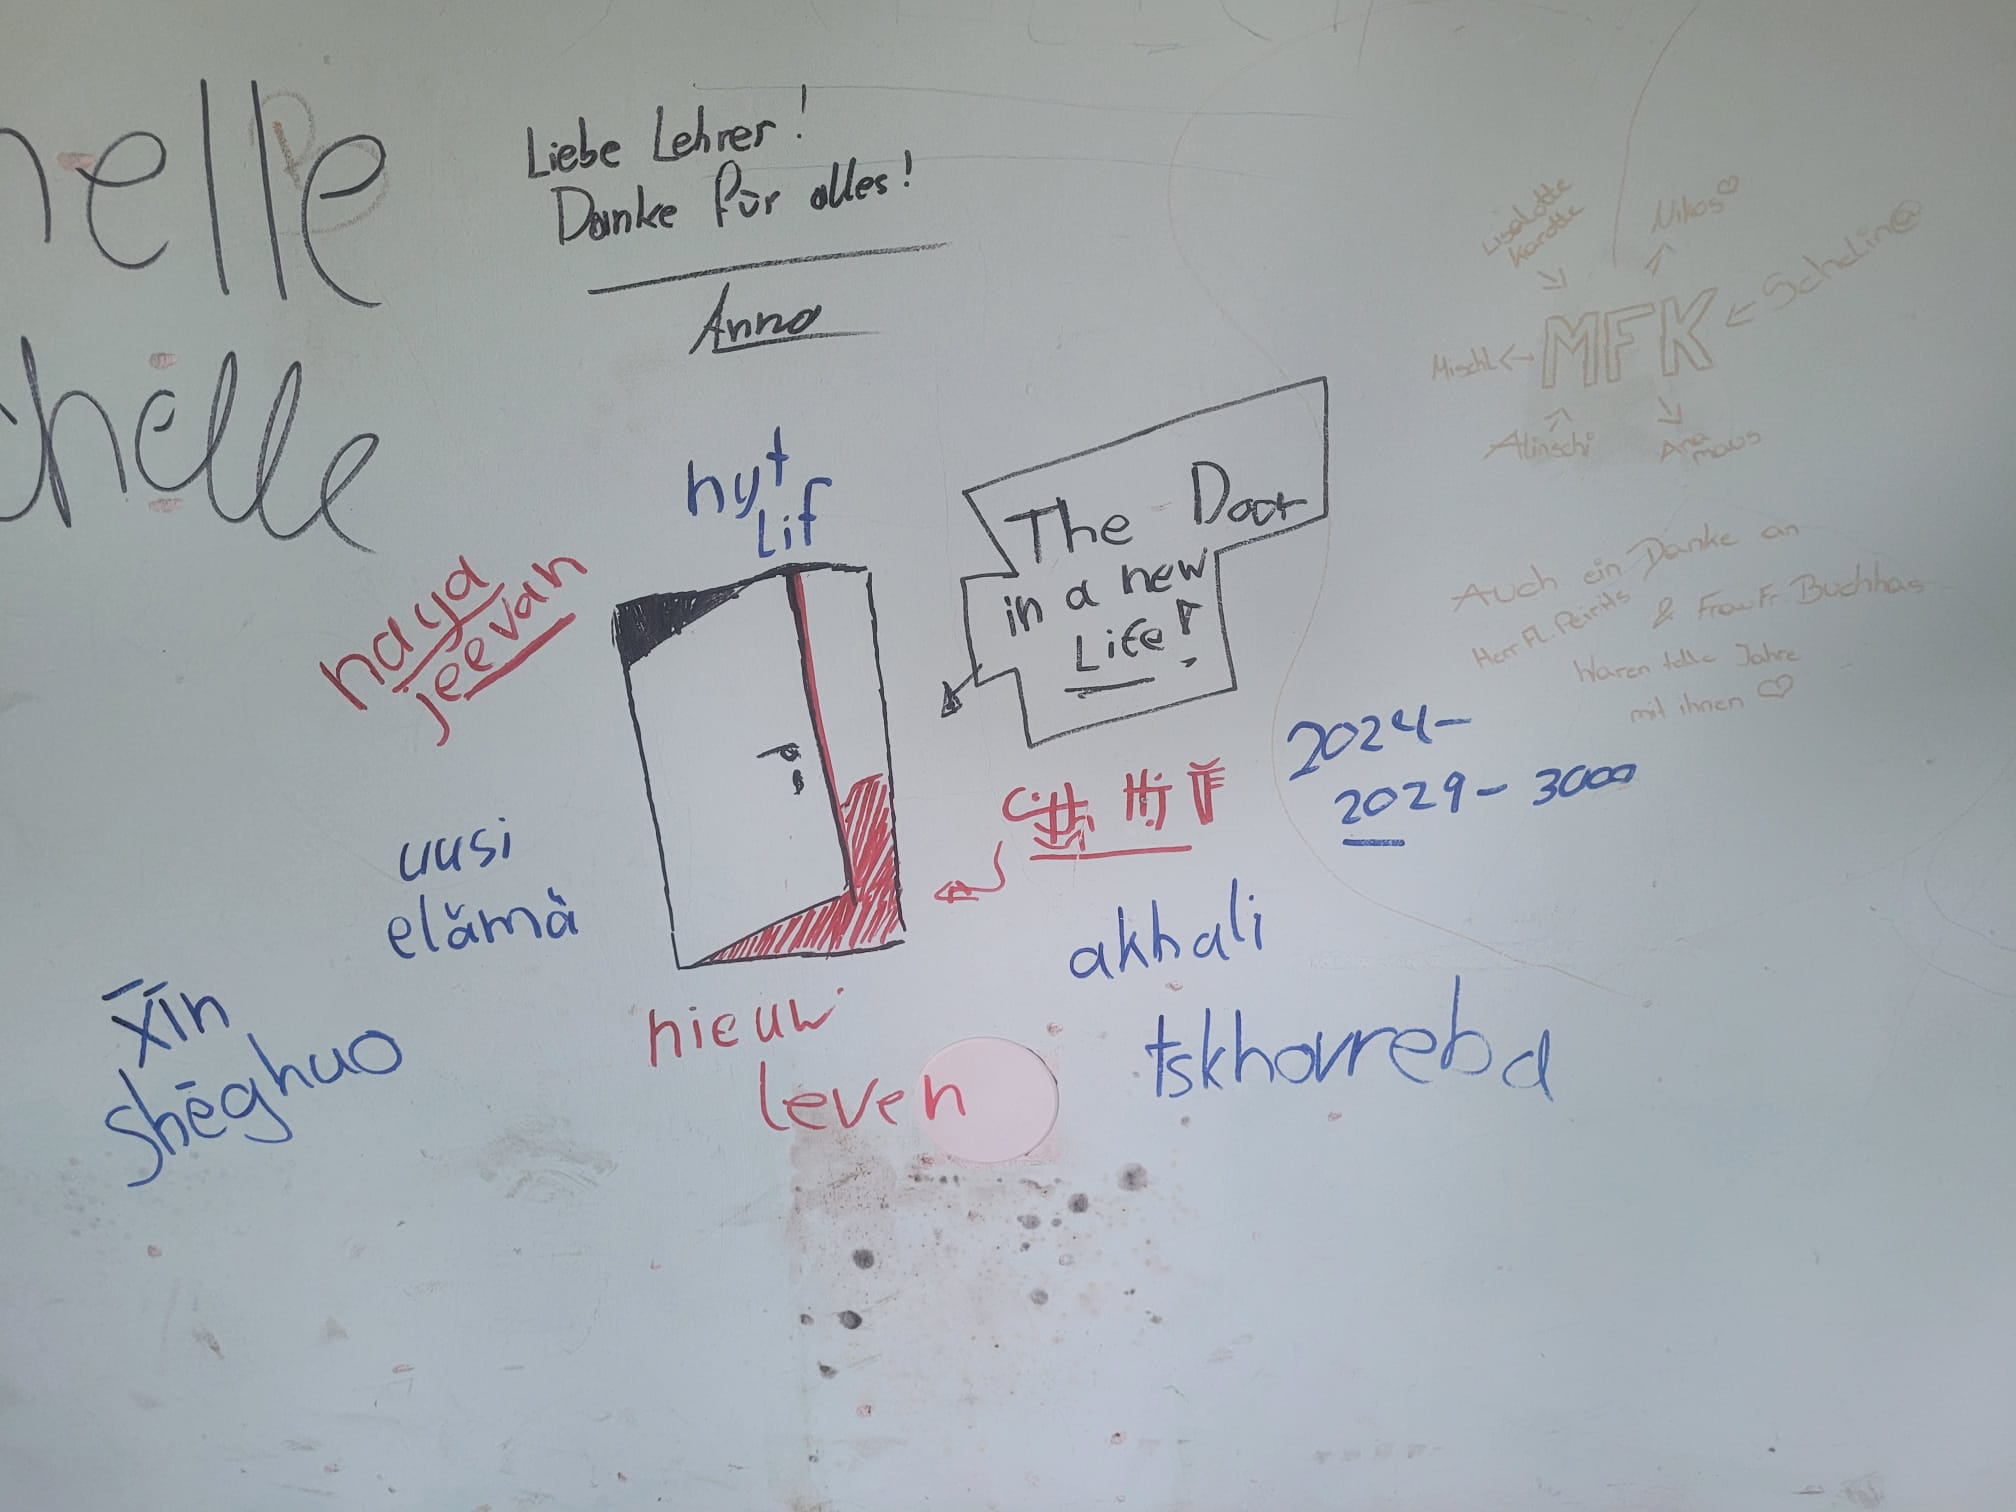 Liebe Lehrer!
Danke für alles!
Anna
Lisalotte
Karotte
Nikos♡
MFK
Mischl
Alinschi
Ana
maus
hyt
Lif
The Door
in a new
Life!
naya
jeevan
Auch ein Danke an
Herr Fl.
& Frau Fr. Buchhas
Waren tolle Jahre
mit ihnen ♡
2024-
2029-3000
uusi
elämä
akhali
tskhovreba
xīn
shēghuo
nieuw
leven